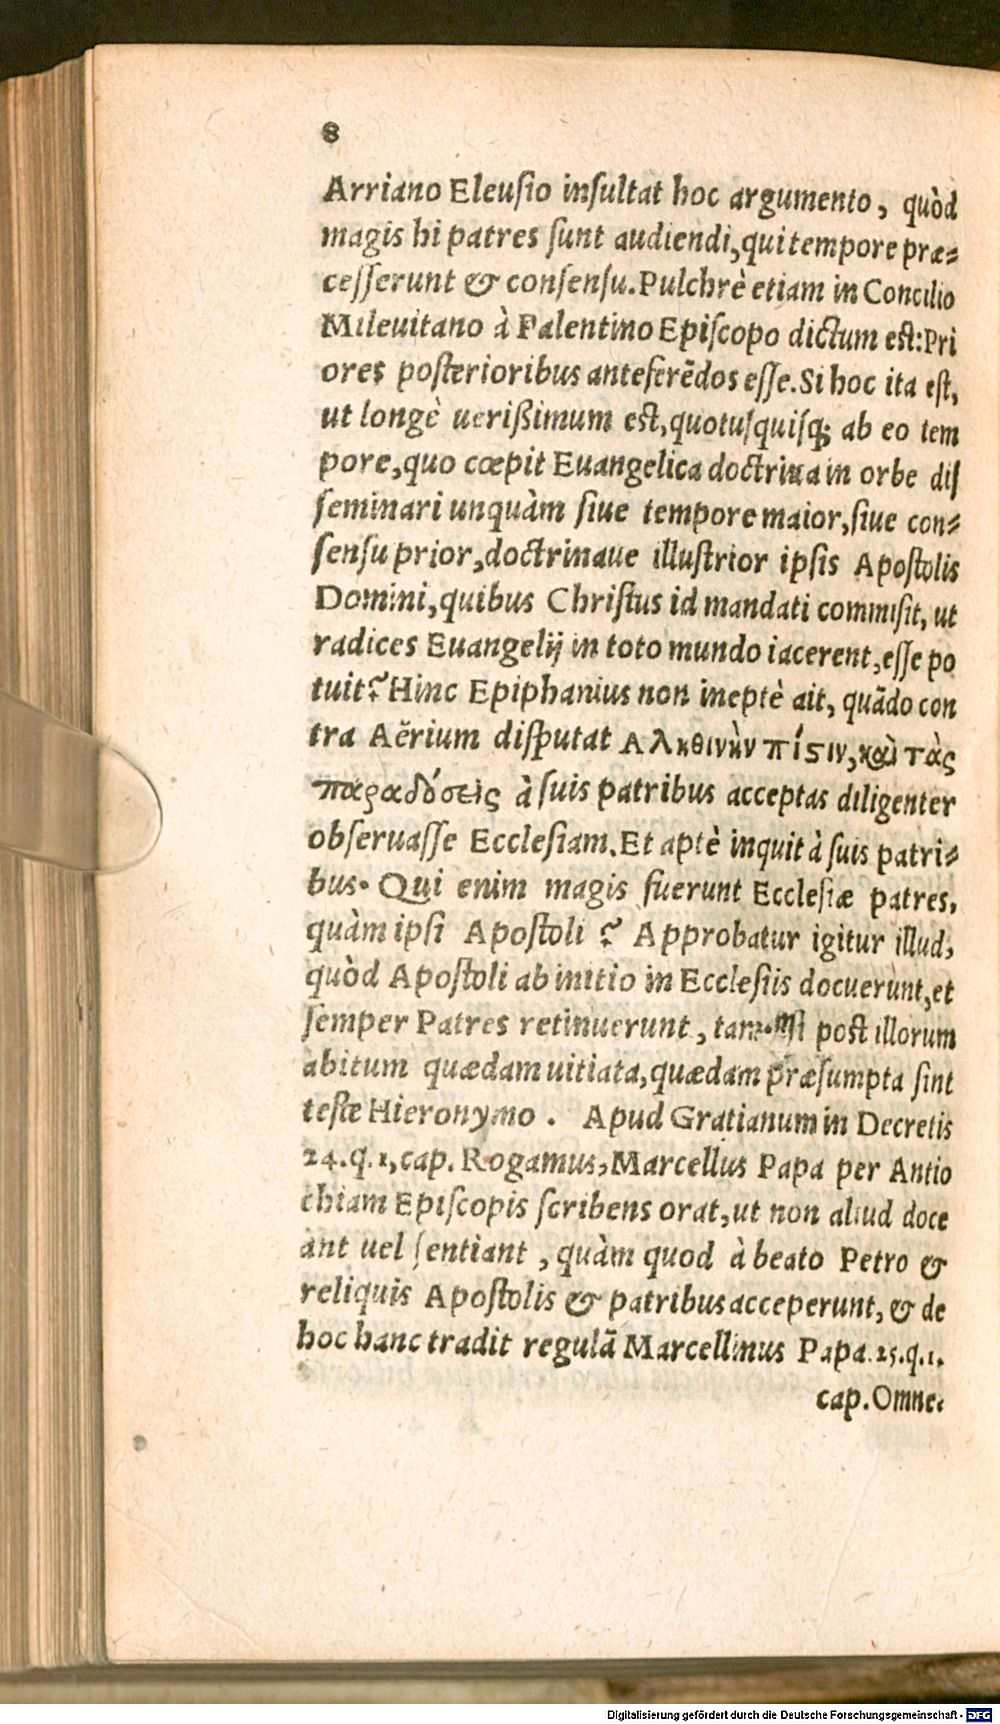 8
Arriano Eleuſio inſultat hoc argumento, quòd
magis hi patres ſunt audiendi, qui tempore præ⸗
ceſſerunt & conſenſu. Pulchrè etiam in Concilio
Mileuitano à Palentino Epiſcopo dictum eſt: Pri
ores poſterioribus anteferẽdos eſſe. Si hoc ita eſt,
ut longè uerißimum eſt, quotuſquiſq; ab eo tem
pore, quo cœpit Euangelica doctrina in orbe diſ
ſeminari unquàm ſiue tempore maior, ſiue con⸗
ſenſu prior, doctrinaue illuſtrior ipſis Apoſtolis
Domini, quibus Chriſtus id mandati commiſit, ut
radices Euangelij in toto mundo iacerent, eſſe po
tuit? Hinc Epiphanius non ineptè ait, quãdo con
tra Aërium diſputat Αληθινὴν πίστιν, καὶ τὰς
παραδόσεις à ſuis patribus acceptas diligenter
obſeruaſſe Eccleſiam. Et aptè inquit à ſuis patri⸗
bus. Qui enim magis fuerunt Eccleſiæ patres,
quàm ipſi Apoſtoli? Approbatur igitur illud,
quòd Apoſtoli ab initio in Eccleſiis docuerunt, et
ſemper Patres retinuerunt, post illorum
abitum quædam uitiata, quædam præſumpta ſint
teſte Hieronymo. Apud Gratianum in Decretis
24. q. 1, cap. Rogamus, Marcellus Papa per Antio
chiam Epiſcopis ſcribens orat, ut non aliud doce
ant uel ſentiant, quàm quod à beato Petro &
reliquis Apoſtolis & patribus acceperunt, & de
hoc hanc tradit regulã Marcellinus Papa. 25. q. 1.
cap. Omne.
Digitalisierung gefördert durch die Deutsche Forschungsgemeinschaft - DFG